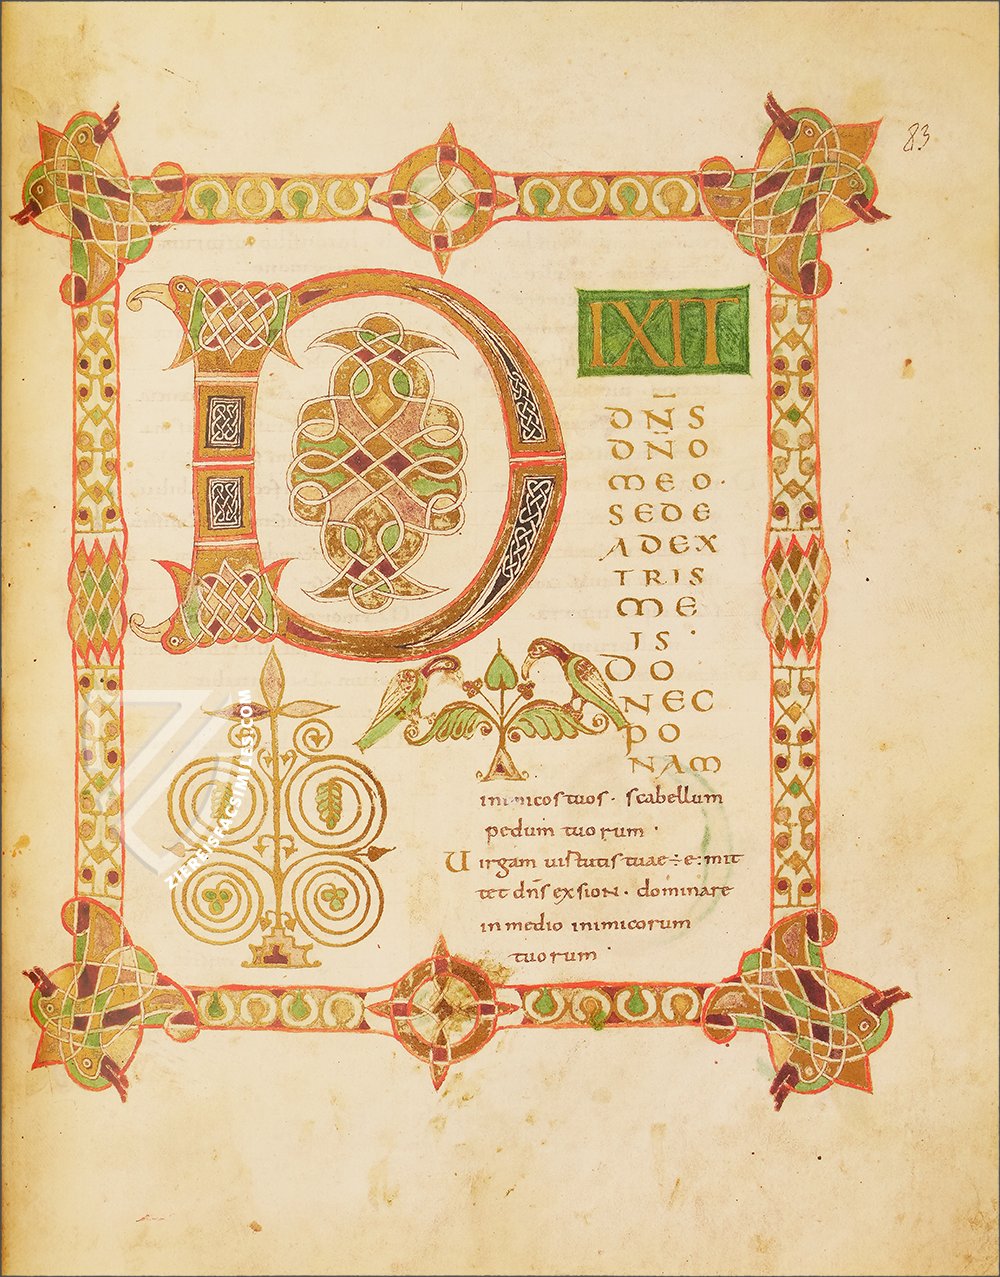 83
DIXIT
DN̄S
DN̄O
MEO·
SEDE
ADEX
TRIS
ME
IS·
DO
NEC
PO
NAM
inimicos tuos · scabellum
pedum tuorum ·
Uirgam uirtutis tuae ÷ e:mit
tet dn̄s exsion · dominare
in medio inimicorum
tuorum
ZIEREISFACSIMILES.COM